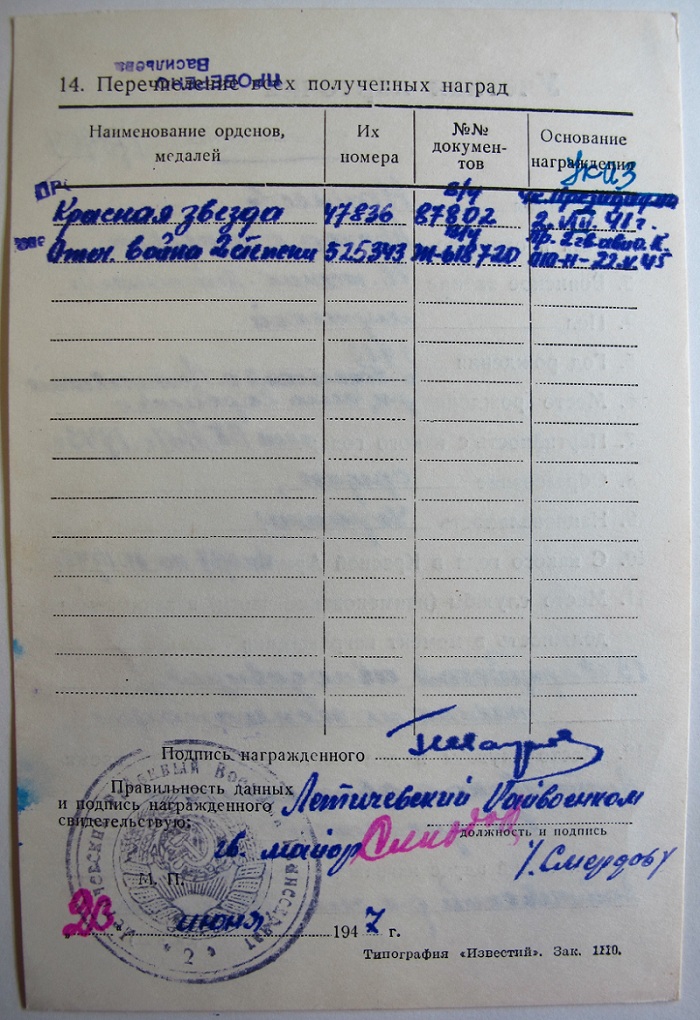 ПРОВЕРЕНО
Васильева
14. Перечисление всех полученных наград
Наименование орденов, медалей
Их номера
№№ документов
Основание награждения
Указ
Красная звезда 47836 в/ч 87802 2.VII.41 г.
Отеч. война 2 степени 525343 Ж-618720 Пр. 2 гв. авиа. К.
22.X.45
Подпись награжденного
Правильность данных
и подпись награжденного
свидетельствую:
Летичевский Райвоенком
должность и подпись
гв. майор
/Смердов/
М. П.
23 июня 1947 г.
Типография «Известий». Зак. 1110.